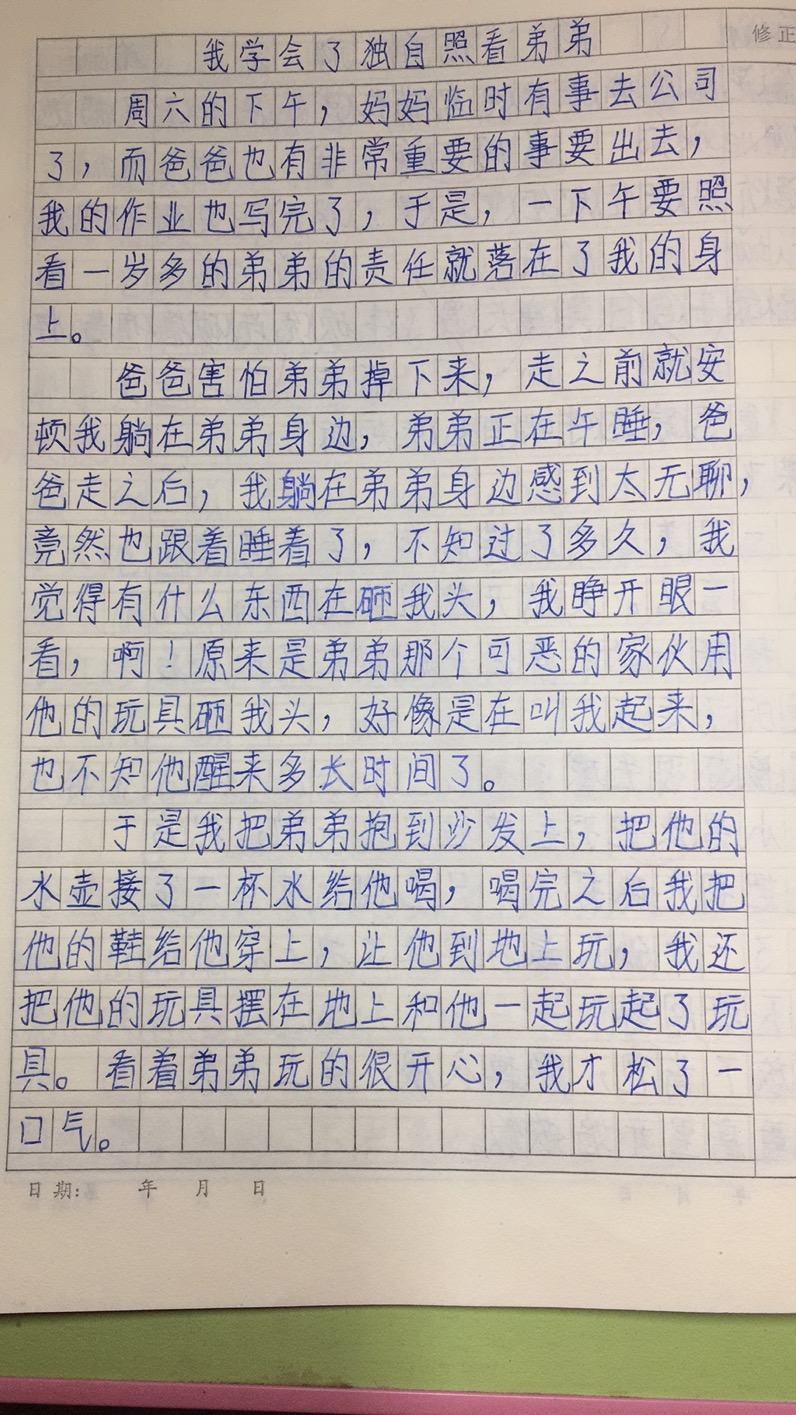 修正
我学会了独自照看弟弟
周六的下午，妈妈临时有事去公司
了，而爸爸也有非常重要的事要出去，
我的作业也写完了，于是，一下午要照
看一岁多的弟弟的责任就落在了我的身
上。
爸爸害怕弟弟掉下来，走之前就安
顿我躺在弟弟身边，弟弟正在午睡，爸
爸走之后，我躺在弟弟身边感到太无聊，
竟然也跟着睡着了，不知过了多久，我
觉得有什么东西在砸我头，我睁开眼一
看，啊！原来是弟弟那个可恶的家伙用
他的玩具砸我头，好像是在叫我起来，
也不知他醒来多长时间了。
于是我把弟弟抱到沙发上，把他的
水壶接了一杯水给他喝，喝完之后我把
他的鞋给他穿上，让他到地上玩，我还
把他的玩具摆在地上和他一起玩起了玩
具。看着弟弟玩的很开心，我才松了一
口气。
日期: 年 月 日